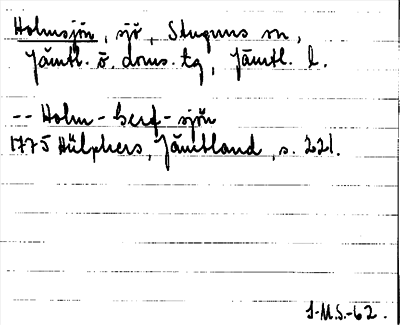 Holmsjön, sjö, Stuguns sn,
Jämtl. ö. doms. tg, Jämtl. l.
-- Holm-Gerf-sjön
1775 Hülphers, Jämtland, s. 221.
I-M.S.-62.